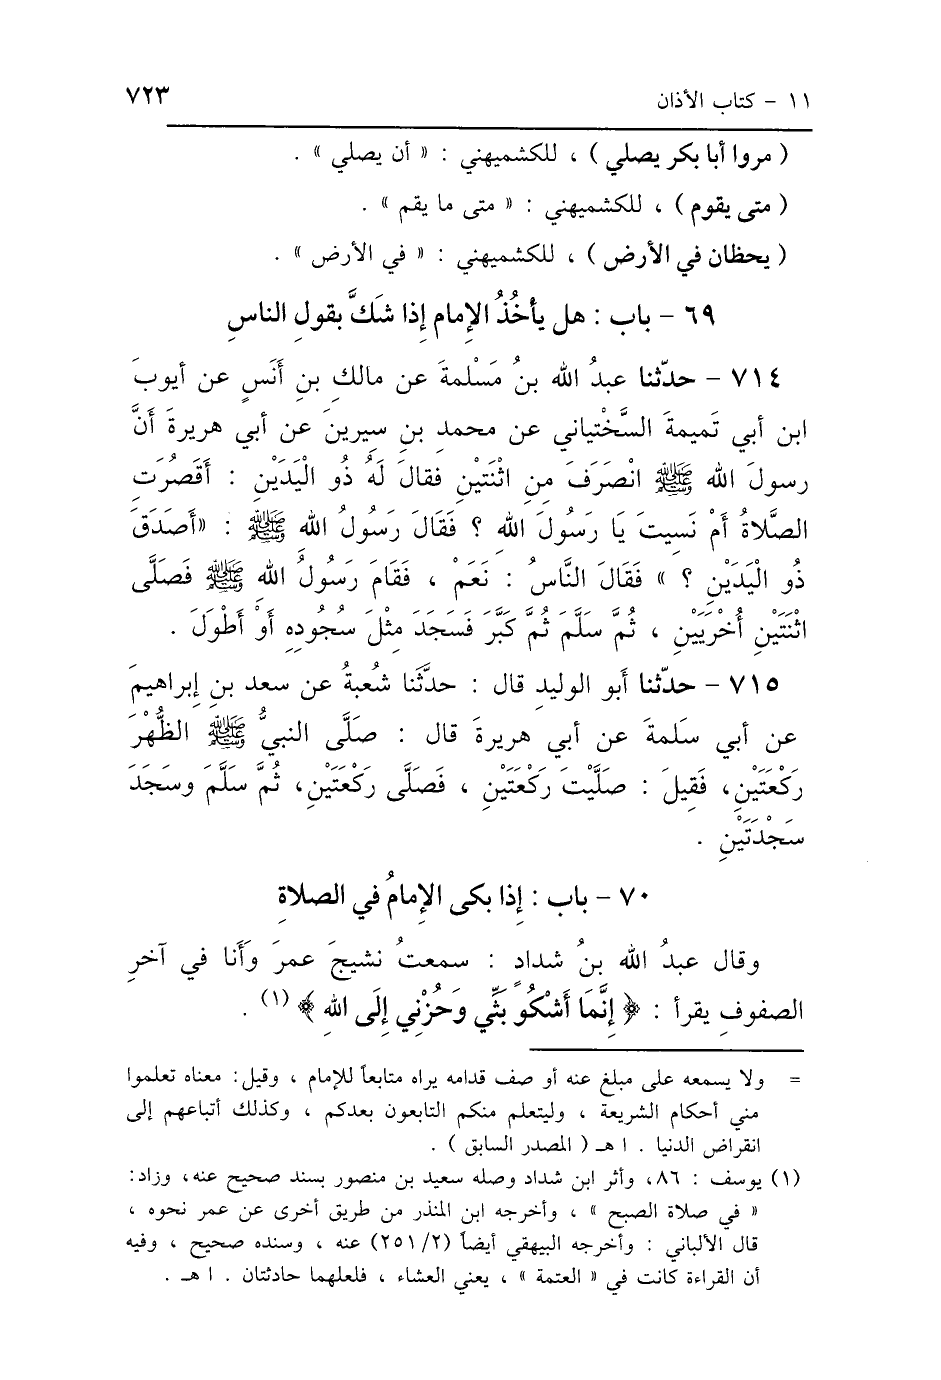 ١١ - كتاب الأذان ٧٢٣
( مروا أبا بكر يصلي ) ، للكشميهني : « أن يصلي » .
( متى يقوم ) ، للكشميهني : « متى ما يقم » .
( يحظان في الأرض ) ، للكشميهني : « في الأرض » .
٦٩ - باب : هل يأخُذُ الإمام إذا شَكَّ بقولِ الناسِ
٧١٤ - حدّثنا عبدُ الله بنُ مَسْلمةَ عن مالكِ بنِ أَنَسٍ عن أيوبَ
ابن أبي تَميمةَ السَّخْتِياني عن محمدِ بنِ سِيرينَ عن أبي هريرةَ أَنَّ
رسولَ الله ﷺ انْصَرَفَ مِنِ اثْنَتَيْنِ فقالَ لَهُ ذُو الْيَدَيْنِ : أَقَصُرَتِ
الصَّلاةُ أَمْ نَسِيتَ يَا رَسُولَ الله ؟ فَقَالَ رَسُولُ الله ﷺ : «أَصَدَقَ
ذُو الْيَدَيْنِ ؟ » فَقَالَ النَّاسُ : نَعَمْ ، فَقَامَ رَسُولُ اللهِ ﷺ فَصَلَّى
اثْنَتَيْنِ أُخْرَيَيْنِ ، ثُمَّ سَلَّمَ ثُمَّ كَبَّرَ فَسَجَدَ مِثْلَ سُجُودِهِ أَوْ أَطْوَلَ .
٧١٥ - حدّثنا أبو الوليدِ قال : حدَّثَنا شُعبةُ عن سعدِ بنِ إبراهيمَ
عن أبي سَلمةَ عن أبي هريرةَ قال : صَلَّى النبيُّ ﷺ الظُّهْرَ
رَكْعَتَيْنِ، فَقِيلَ : صَلَّيْتَ رَكْعَتَيْنِ ، فَصَلَّى رَكْعَتَيْنِ، ثُمَّ سَلَّمَ وسَجَدَ
سَجْدَتَيْنِ .
٧٠ - باب : إذا بكى الإمامُ في الصلاةِ
وقال عبدُ الله بنُ شدادٍ : سمعتُ نشيجَ عمرَ وَأَنا في آخرِ
الصفوفِ يقرأ : ﴿ إِنَّمَا أَشْكُو بَثِّي وَحُزْنِي إِلَى اللهِ ﴾ (١) .
= ولا يسمعه على مبلغ عنه أو صف قدامه يراه متابعاً للإمام ، وقيل: معناه تعلموا
مني أحكام الشريعة ، وليتعلم منكم التابعون بعدكم ، وكذلك أتباعهم إلى
انقراض الدنيا . ا هـ ( المصدر السابق ) .
(١) يوسف : ٨٦، وأثر ابن شداد وصله سعيد بن منصور بسند صحيح عنه، وزاد:
« في صلاة الصبح » ، وأخرجه ابن المنذر من طريق أخرى عن عمر نحوه ،
قال الألباني : وأخرجه البيهقي أيضاً (٢/ ٢٥١) عنه ، وسنده صحيح ، وفيه
أن القراءة كانت في « العتمة » ، يعني العشاء ، فلعلهما حادثتان . ا هـ .